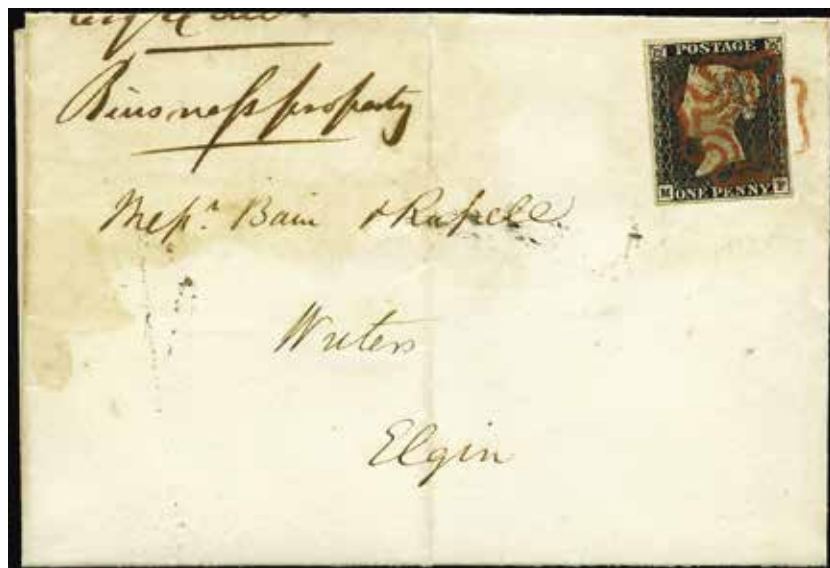 Business property
POSTAGE
ONE PENNY
Messrs. Bain & Russell
Writers
Elgin